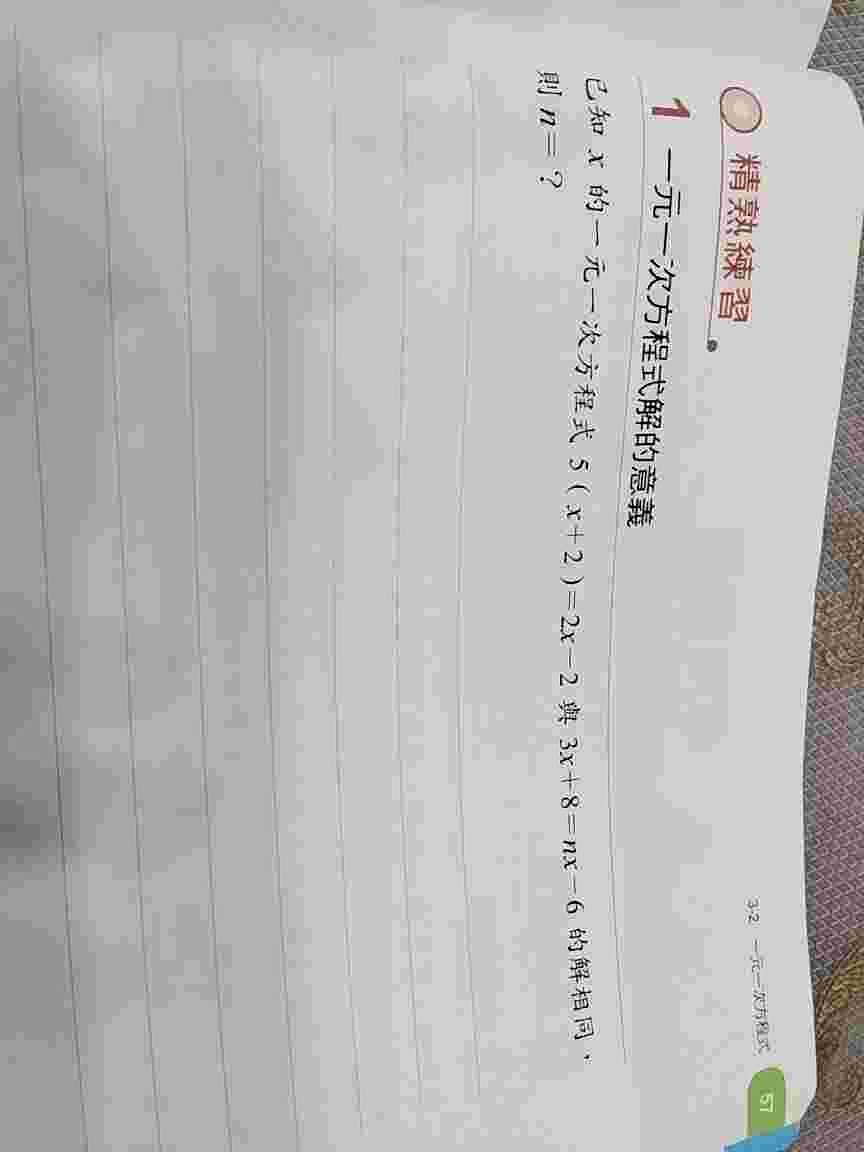 3-2 一元一次方程式 57
精熟練習
1 一元一次方程式解的意義
已知 x 的一元一次方程式 5(x+2)=2x-2 與 3x+8=nx-6 的解相同,
則 n=?